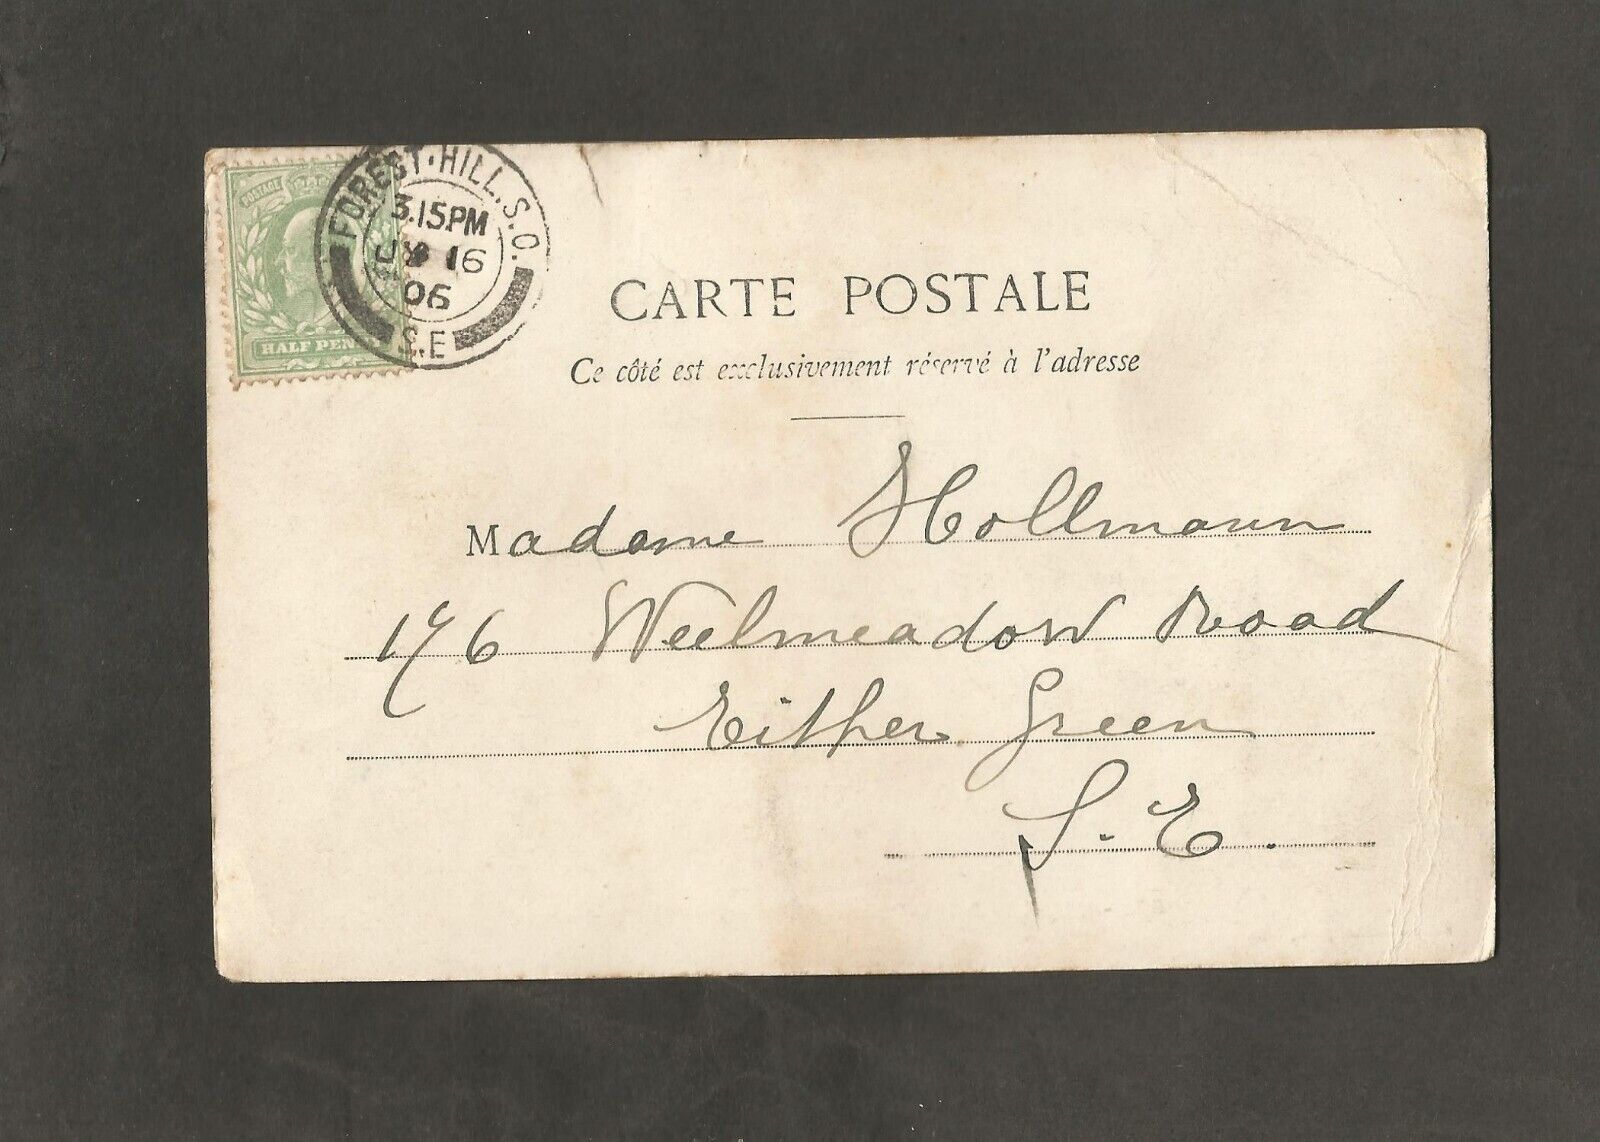 POSTAGE
HALF PEN
FOREST·HILL.S.O.
3.15PM
JY 16
06
S.E
CARTE POSTALE
Ce côté est exclusivement réservé à l'adresse
Madame Hollmann
176 Weelmeadow Road
Either Green
S.E.